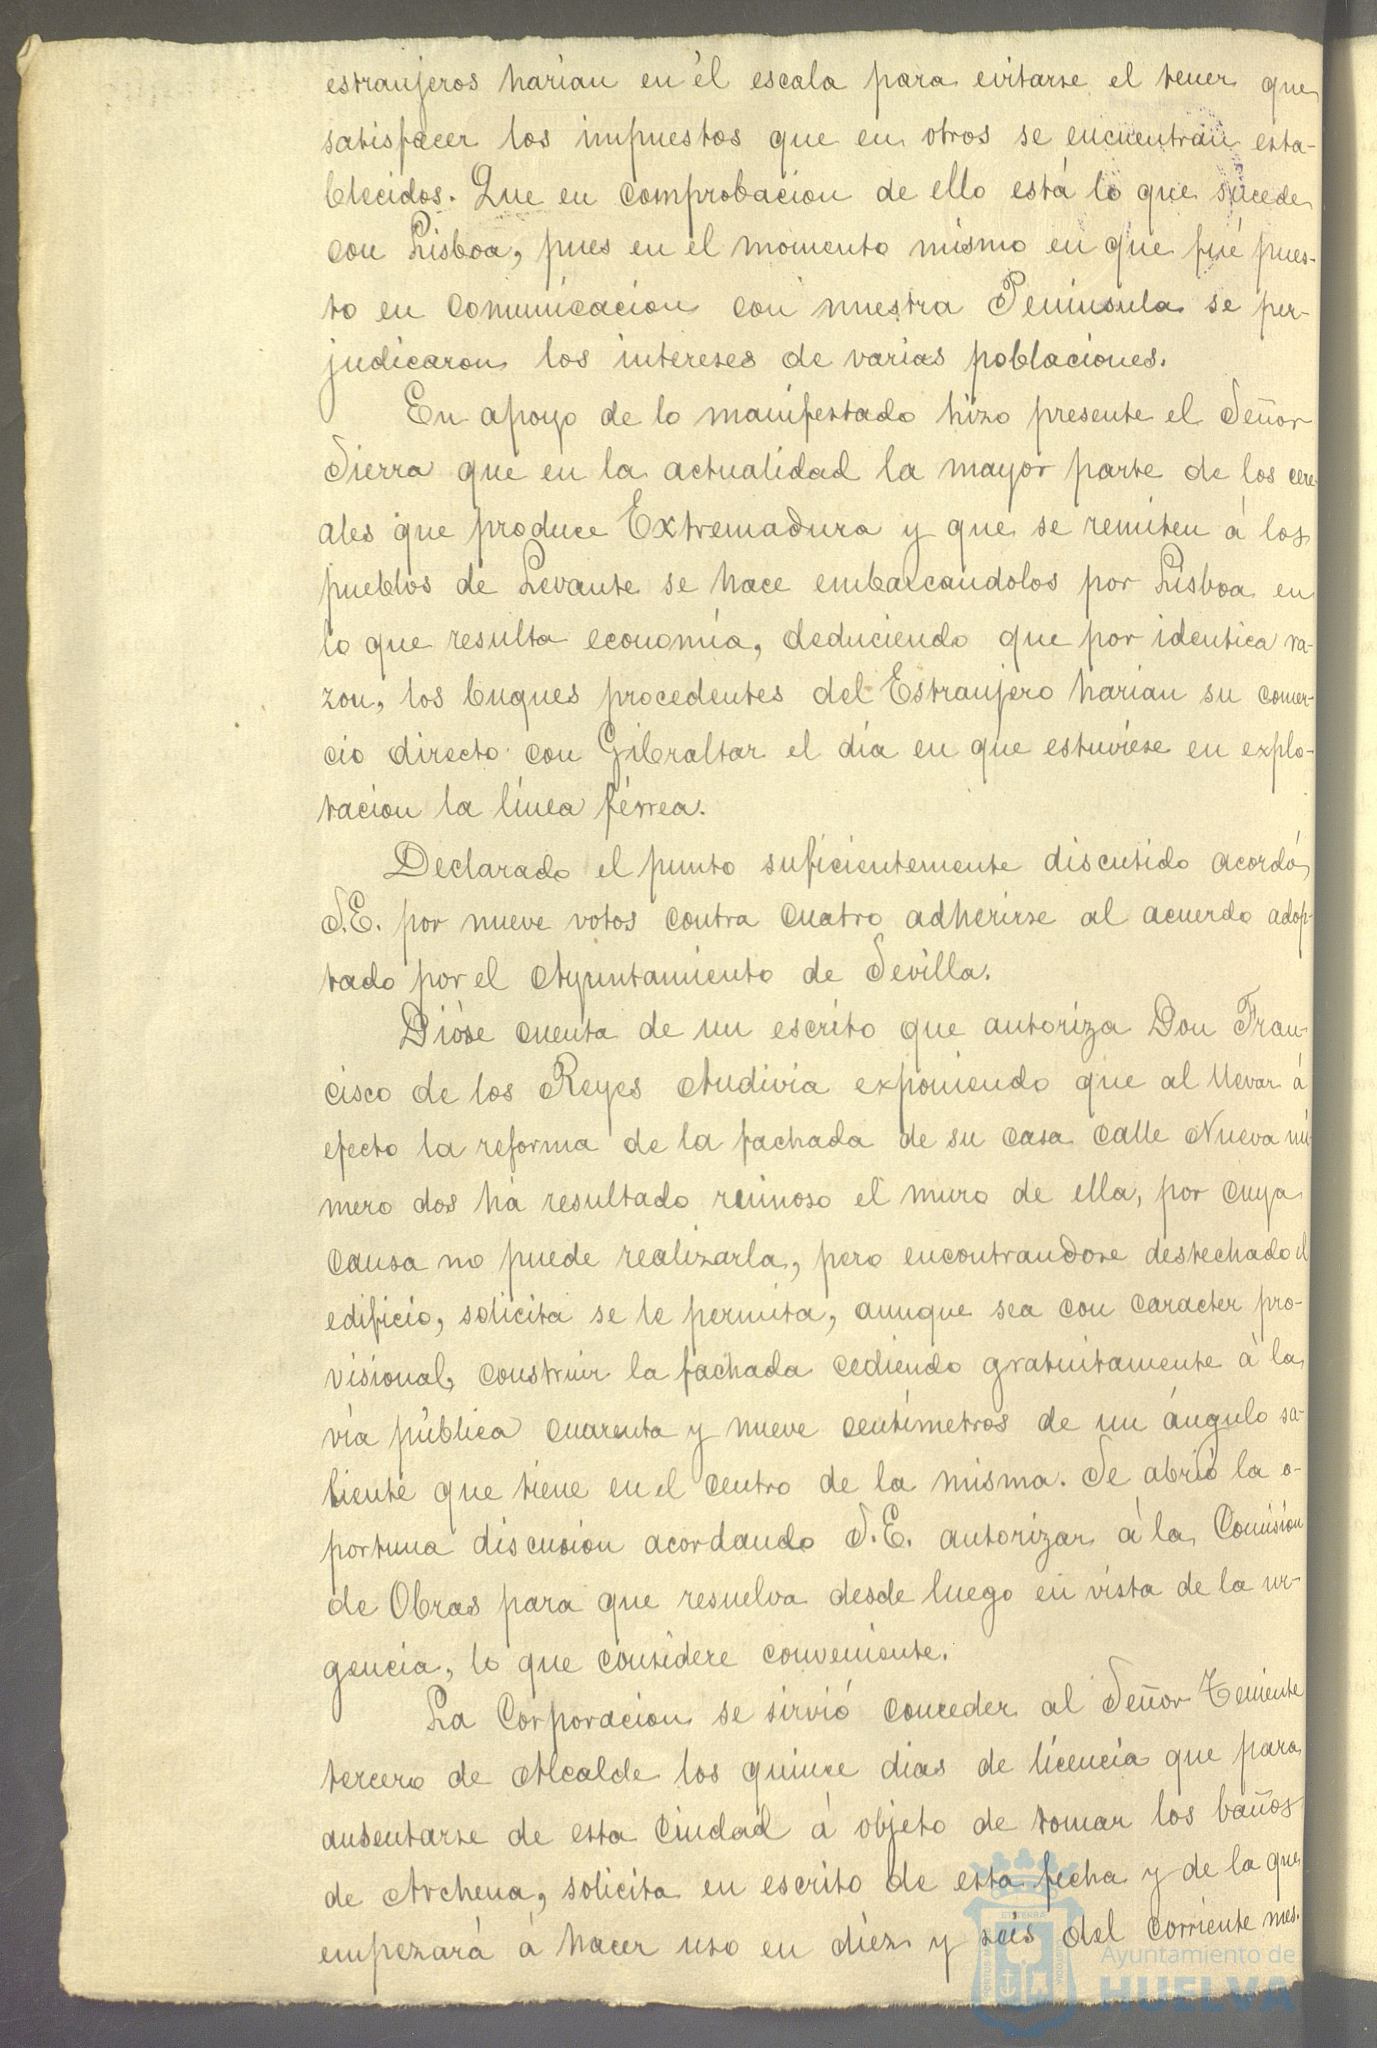 estranjeros harian en él escala para evitarse el tener que
satisfacer los impuestos que en otros se encuentran esta-
blecidos. Que en comprobacion de ello está lo que sucede
con Lisboa, pues en el momento mismo en que fué pues-
to en comunicacion con nuestra Península se per-
judicaron los intereses de varias poblaciones.
En apoyo de lo manifestado hizo presente el Señor
Sierra que en la actualidad la mayor parte de los cere
ales que produce Extremadura y que se remiten á los
pueblos de Levante se hace embarcandolos por Lisboa en
lo que resulta economía, deduciendo que por identica ra-
zon, los buques procedentes del Estranjero harian su comer-
cio directo con Gibraltar el día en que estuviese en explo-
tacion la línea férrea.
Declarado el punto suficientemente discutido acordó
S.E. por nueve votos contra cuatro adherirse al acuerdo adop-
tado por el Ayuntamiento de Sevilla.
Dióse cuenta de un escrito que autoriza Don Fran-
cisco de los Reyes Andivia exponiendo que al llevar á
efecto la reforma de la fachada de su casa calle Nueva nú-
mero dos há resultado ruinoso el muro de ella, por cuya
causa no puede realizarla, pero encontrandose destechado el
edificio, solicita se le permita, aunque sea con caracter pro-
visional, construir la fachada cediendo gratuitamente á la
vía pública cuarenta y nueve centímetros de un ángulo sa-
liente que tiene en el centro de la misma. Se abrió la o-
portuna discusion acordando S.E. autorizar á la Comision
de Obras para que resuelva desde luego en vista de la ur-
gencia, lo que considere conveniente.
La Corporacion se sirvió conceder al Señor Teniente
tercero de Alcalde los quince dias de licencia que para
ausentarse de esta Ciudad á objeto de tomar los baños
de Archena, solicita en escrito de esta fecha y de la que
empezará á hacer uso en diez y seis del corriente mes.
Ayuntamiento de
HUELVA